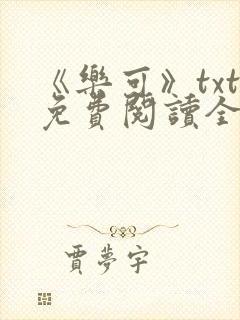 《樂可》txt
免費閱讀全
賈夢宇